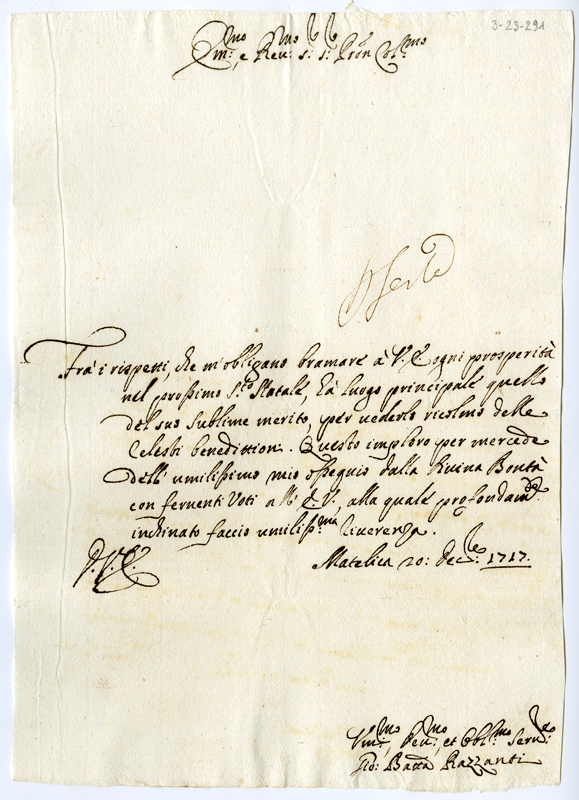 3-23-291
Em:mo e Reu:mo S: S: Pron Col:mo
Fra' i rispetti, che m'obligano bramare à V. E. ogni prosperità
nel prossimo S:to Natale, hà luogo principale quello
del suo sublime merito, per uederlo ricolmo delle
Celesti benedittioni. Questo imploro per mercede
dell' umilissimo mio ossequio dalla Diuina Bontà
con feruenti Voti a N. E. V., alla quale profondam:te
inchinato faccio umiliss:ma riuerenza.
D. V. E.
Matelica 20: Dec:re 1717.
Um:mo, Deu:mo, et Obl:mo Seru:re
Gio: Batta Razzanti